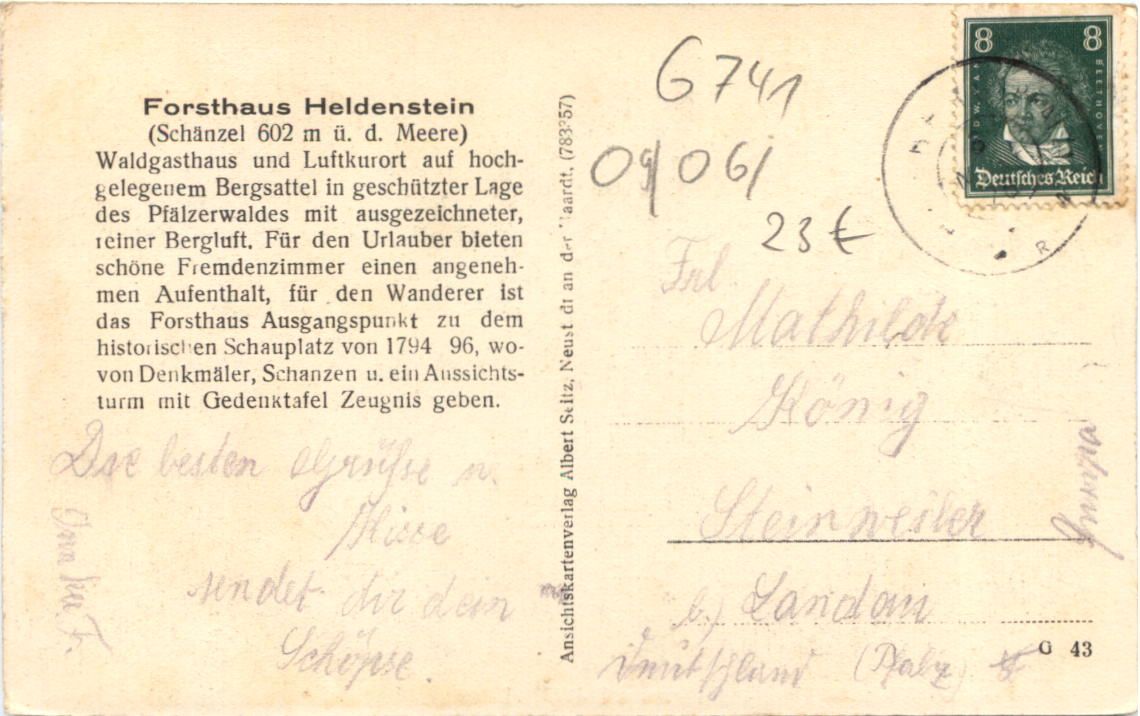 Forsthaus Heldenstein
(Schänzel 602 m ü. d. Meere)
Waldgasthaus und Luftkurort auf hoch-
gelegenem Bergsattel in geschützter Lage
des Pfälzerwaldes mit ausgezeichneter,
reiner Bergluft. Für den Urlauber bieten
schöne Fremdenzimmer einen angeneh-
men Aufenthalt, für den Wanderer ist
das Forsthaus Ausgangspunkt zu dem
historischen Schauplatz von 1794 96, wo-
von Denkmäler, Schanzen u. ein Aussichts-
turm mit Gedenktafel Zeugnis geben.
Die besten Grüße u.
sendet dir dein
Ansichtskartenverlag Albert Seitz, Neustadt an der Haardt.
G 741
09/06/
23 €
8 8
LUDW. VAN
BEETHOVEN
Deutsches Reich
Frl.
Mathilde
König
Steinweiler
b.) Landau
Deutschland (Pfalz)
G 43